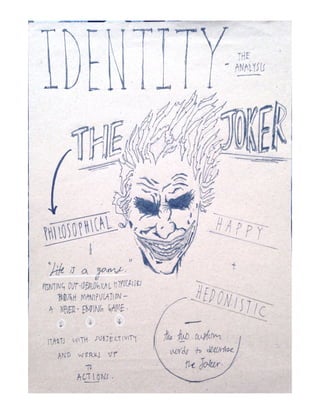 IDENTITY
- THE
ANALYSIS
THE JOKER
PHILOSOPHICAL
HAPPY
&
+
"Life is a game."
HEDONISTIC
POINTING OUT IDEOLOGICAL HYPOCRISIES
THROUGH MANIPULATION -
A NEVER-ENDING GAME.
STARTS WITH SUBJECTIVITY
AND WORKS UP
TO
ACTIONS.
the two custom
words to describe
the Joker.